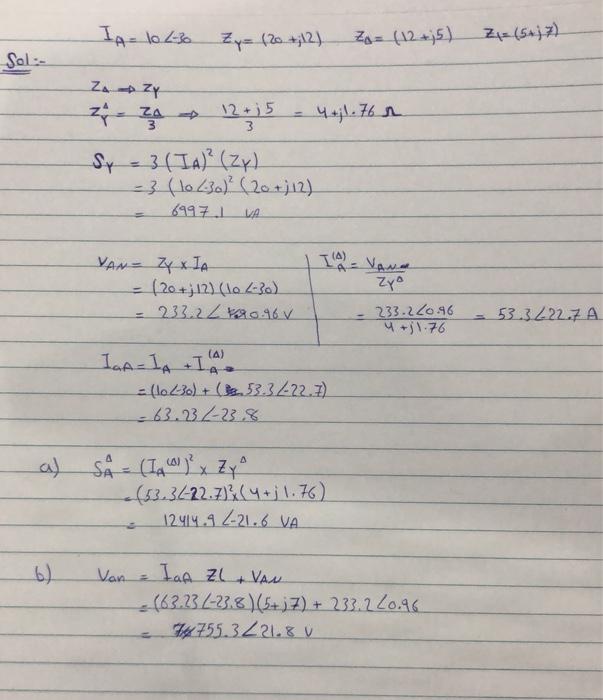 I_A = 10∠-30 Z_Y = (20+j12) Z_Δ = (12+j5) Z_l = (5+j7)
Sol:-
Z_Δ ⇒ Z_Y
Z_Y^Δ = Z_Δ/3 ⇒ (12+j5)/3 = 4+j1.76 Ω
S_Y = 3(I_A)²(Z_Y)
= 3(10∠-30)²(20+j12)
= 6997.1 VA
V_AN = Z_Y × I_A
= (20+j12)(10∠-30)
= 233.2∠0.96 V
I_A^(Δ) = V_AN/Z_Y^Δ
= 233.2∠0.96/4+j1.76 = 53.3∠22.7 A
I_aA = I_A + I_A^(Δ)
= (10∠-30) + (53.3∠-22.7)
= 63.23∠-23.8
a) S_A^Δ = (I_A^(Δ))² × Z_Y^Δ
= (53.3∠-22.7)²×(4+j1.76)
= 12414.9∠-21.6 VA
b) Van = I_aA Zl + V_AN
= (63.23∠-23.8)(5+j7) + 233.2∠0.96
= 755.3∠21.8 V